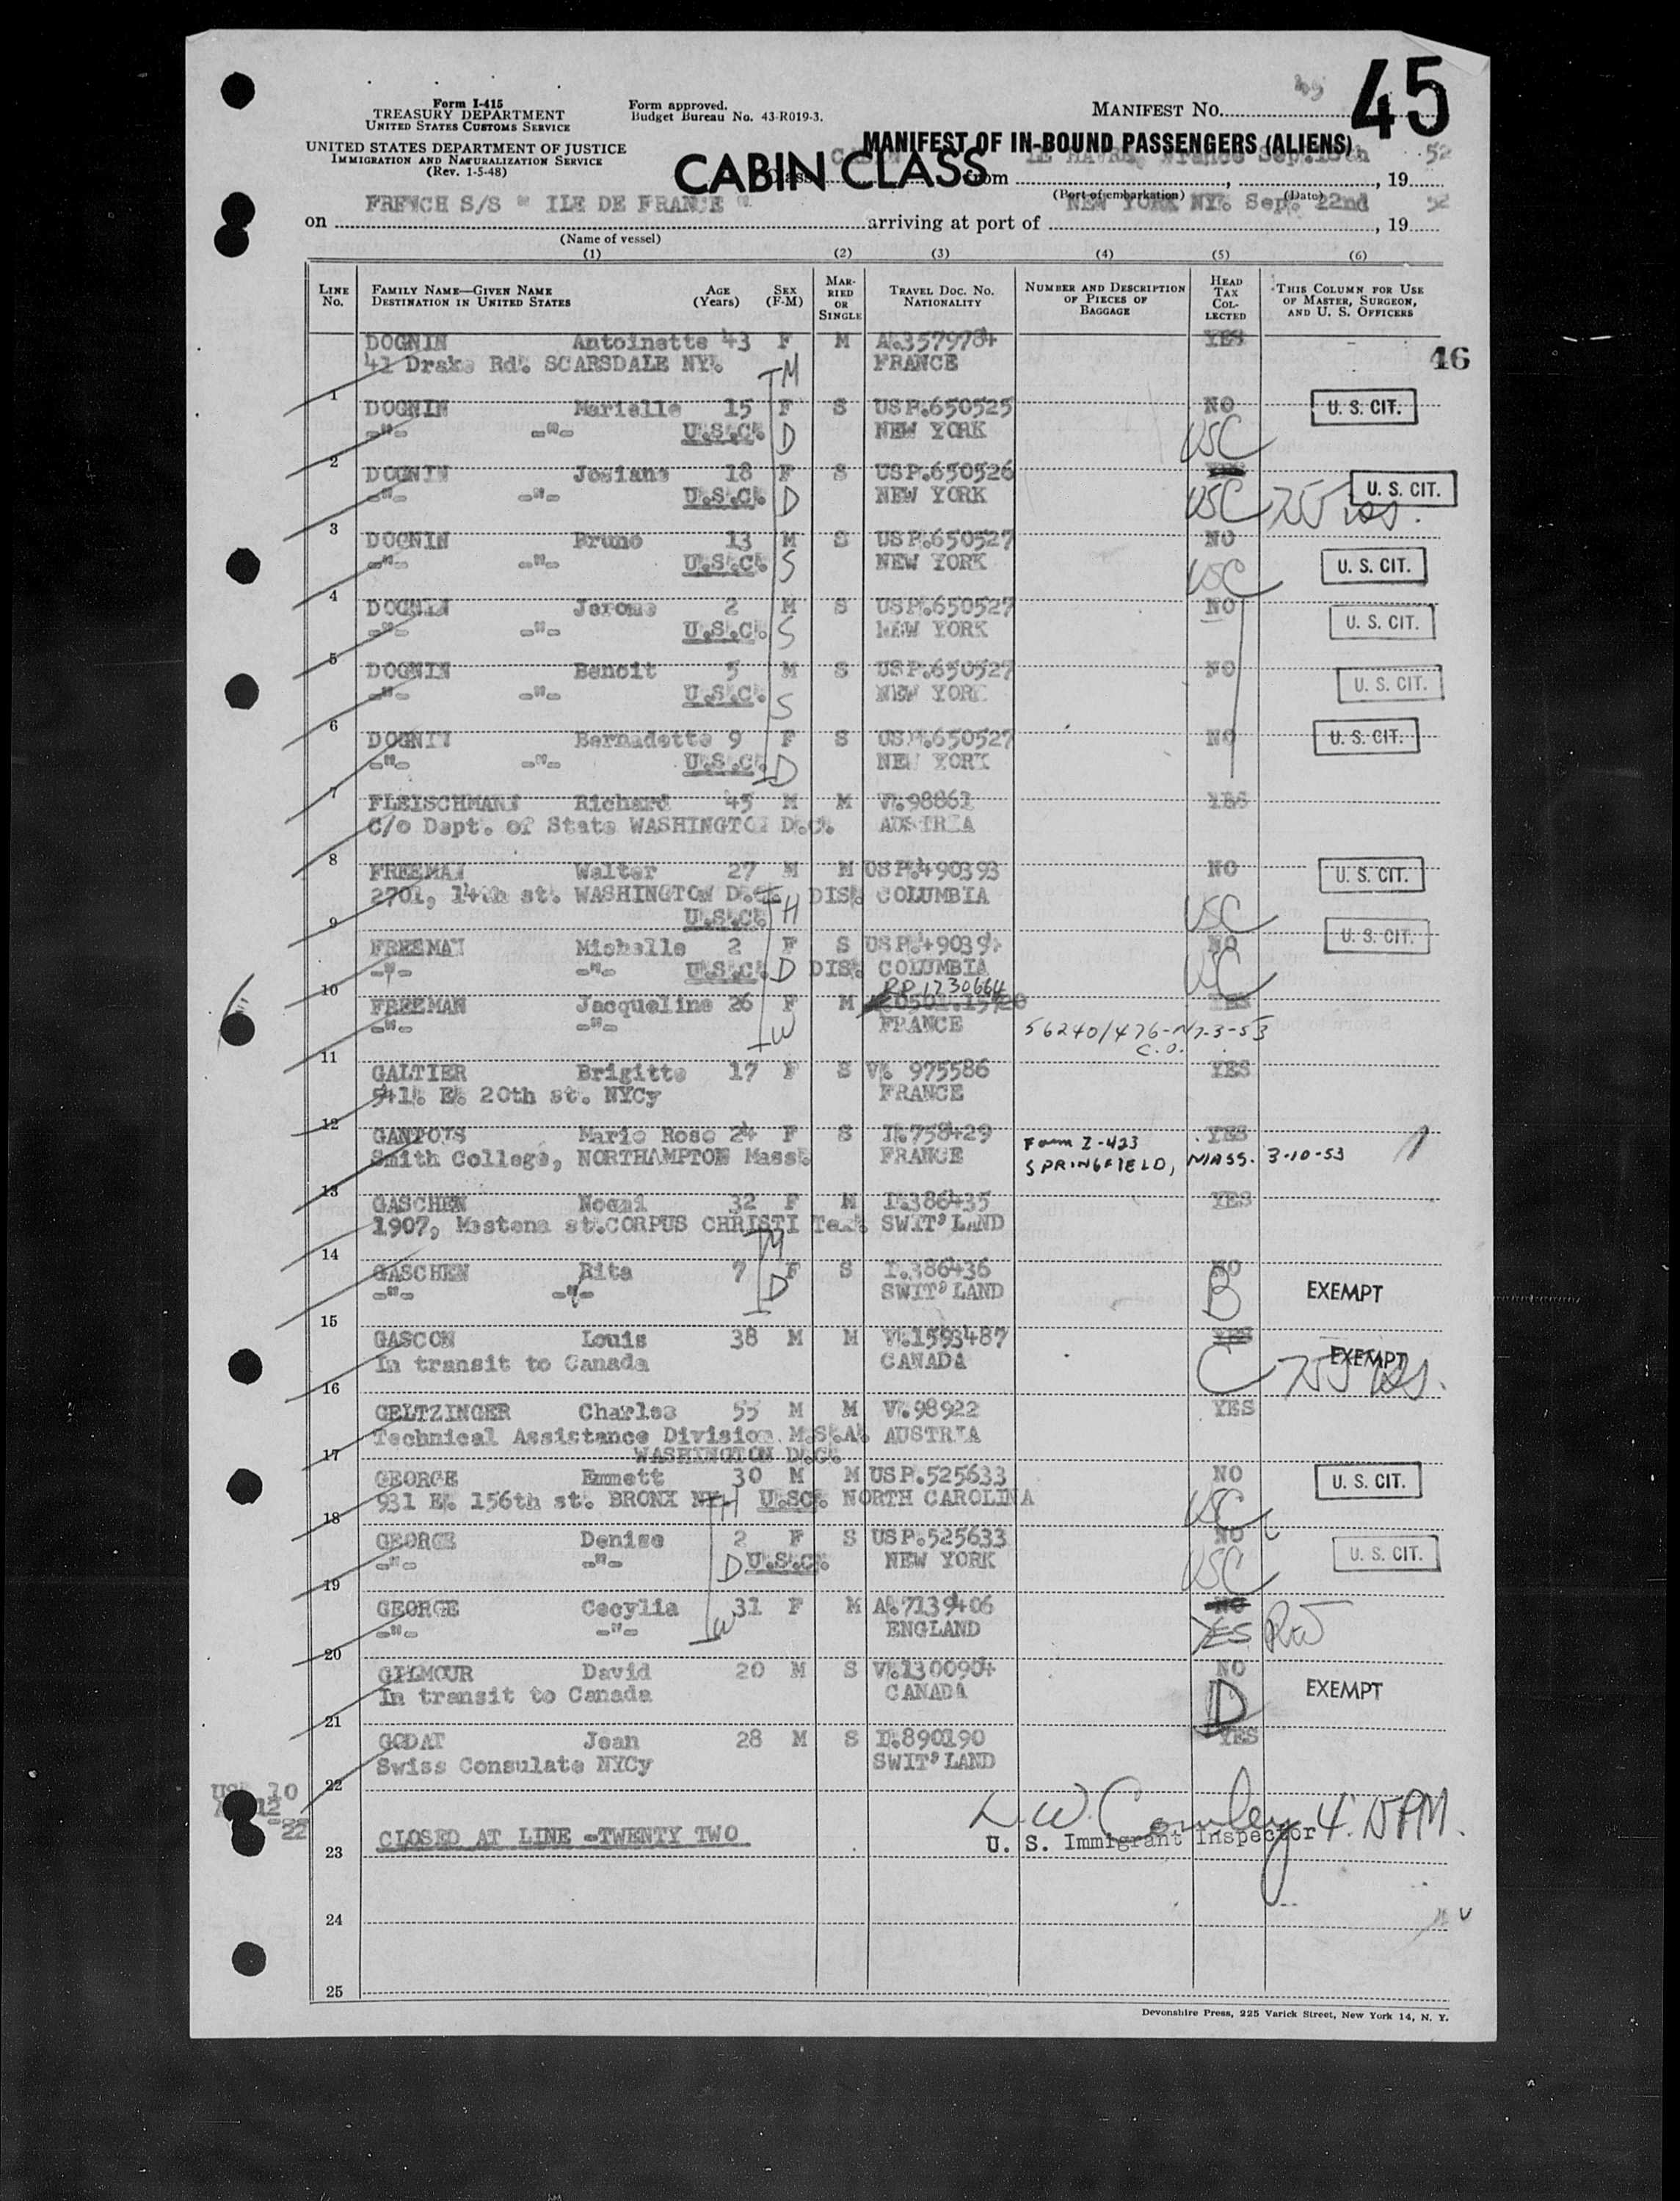 45
Form I-415
TREASURY DEPARTMENT
UNITED STATES CUSTOMS SERVICE
UNITED STATES DEPARTMENT OF JUSTICE
IMMIGRATION AND NATURALIZATION SERVICE
(Rev. 1-5-48)
Form approved.
Budget Bureau No. 43-R019-3.
MANIFEST No.
MANIFEST OF IN-BOUND PASSENGERS (ALIENS)
CABIN CLASS
Class CABIN from LE HAVRE France Sep. , 19 52
(Port of embarkation) (Date)
on FRENCH S/S " ILE DE FRANCE " arriving at port of NEW YORK NY. Sep. 22nd , 19 52
(Name of vessel)
(1) (2) (3) (4) (5) (6)
LINE No. FAMILY NAME—GIVEN NAME DESTINATION IN UNITED STATES AGE (Years) SEX (F-M) MARRIED OR SINGLE TRAVEL DOC. NO. NATIONALITY NUMBER AND DESCRIPTION OF PIECES OF BAGGAGE HEAD TAX COLLECTED THIS COLUMN FOR USE OF MASTER, SURGEON, AND U. S. OFFICERS
DOGNIN Antoinette 43 F M A.3579784 YES
41 Drake Rd. SCARSDALE NY. FRANCE 46
M
1 DOGNIN Marielle 15 F S USP.650525 NO U. S. CIT.
-"- -"- U.S.C. D NEW YORK USC
2 DOGNIN Josiane 18 F S USP.650526 U. S. CIT.
-"- -"- U.S.C. D NEW YORK USC
3 DOGNIN Bruno 13 M S USP.650527 NO
-"- -"- U.S.C. S NEW YORK USC U. S. CIT.
4 DOGNIN Jerome 2 M S USP.650527 NO
-"- -"- U.S.C. S NEW YORK U. S. CIT.
5 DOGNIN Benoit 5 M S USP.650527 NO
-"- -"- U.S.C. S NEW YORK U. S. CIT.
6 DOGNIN Bernadette 9 F S USP.650527 NO U. S. CIT.
-"- -"- U.S.C. D NEW YORK
7 FLEISCHMANN Richard 45 M M V.98861 YES
C/o Dept. of State WASHINGTON D.C. AUSTRIA
8 FREEMAN Walter 27 M M USP.490393 NO U. S. CIT.
2701, 14th st. WASHINGTON D.C. DIS. COLUMBIA
9 U.S.C. H USC
FREEMAN Michelle 2 F S USP.490394 NO U. S. CIT.
-"- -"- U.S.C. D DIS. COLUMBIA USC
10 RP 1730664
FREEMAN Jacqueline 26 F M YES
-"- -"- W FRANCE 56240/476-N7-3-53
C.O.
11 GALTIER Brigitte 17 F S V. 975586 YES
541. E. 20th st. NYCy FRANCE
12 GANTOIS Marie Rose 24 F S I.758429 Form I-423 YES
Smith College, NORTHAMPTON Mass. FRANCE SPRINGFIELD, MASS. 3-10-53
13 GASCHEN Noemi 32 F M I.386435 YES
1907, Mestena st. CORPUS CHRISTI Tex. SWIT'LAND
M
14 GASCHEN Rita 7 F S I.386436 NO
-"- -"- D SWIT'LAND B EXEMPT
15 GASCON Louis 38 M M V.1593487 YES
In transit to Canada CANADA C EXEMPT
16 GELTZINGER Charles 55 M M V.98922 YES
Technical Assistance Division M.S.A. AUSTRIA
17 WASHINGTON D.C.
GEORGE Emmett 30 M M USP.525633 NO U. S. CIT.
931 E. 156th st. BRONX NY. H U.SC. NORTH CAROLINA USC
18 GEORGE Denise 2 F S USP.525633 NO
-"- -"- D U.S.C. NEW YORK USC U. S. CIT.
19 GEORGE Cecylia 31 F M A.7139406 NO
-"- -"- W ENGLAND YES
20 GILMOUR David 20 M S V.1300904 NO
In transit to Canada CANADA D EXEMPT
21 GODAT Jean 28 M S I.890190 YES
Swiss Consulate NYCy SWIT'LAND
22
US 10
A 12
-22
CLOSED AT LINE -TWENTY TWO
U. S. Immigrant Inspector
23
24
25
Devonshire Press, 225 Varick Street, New York 14, N. Y.